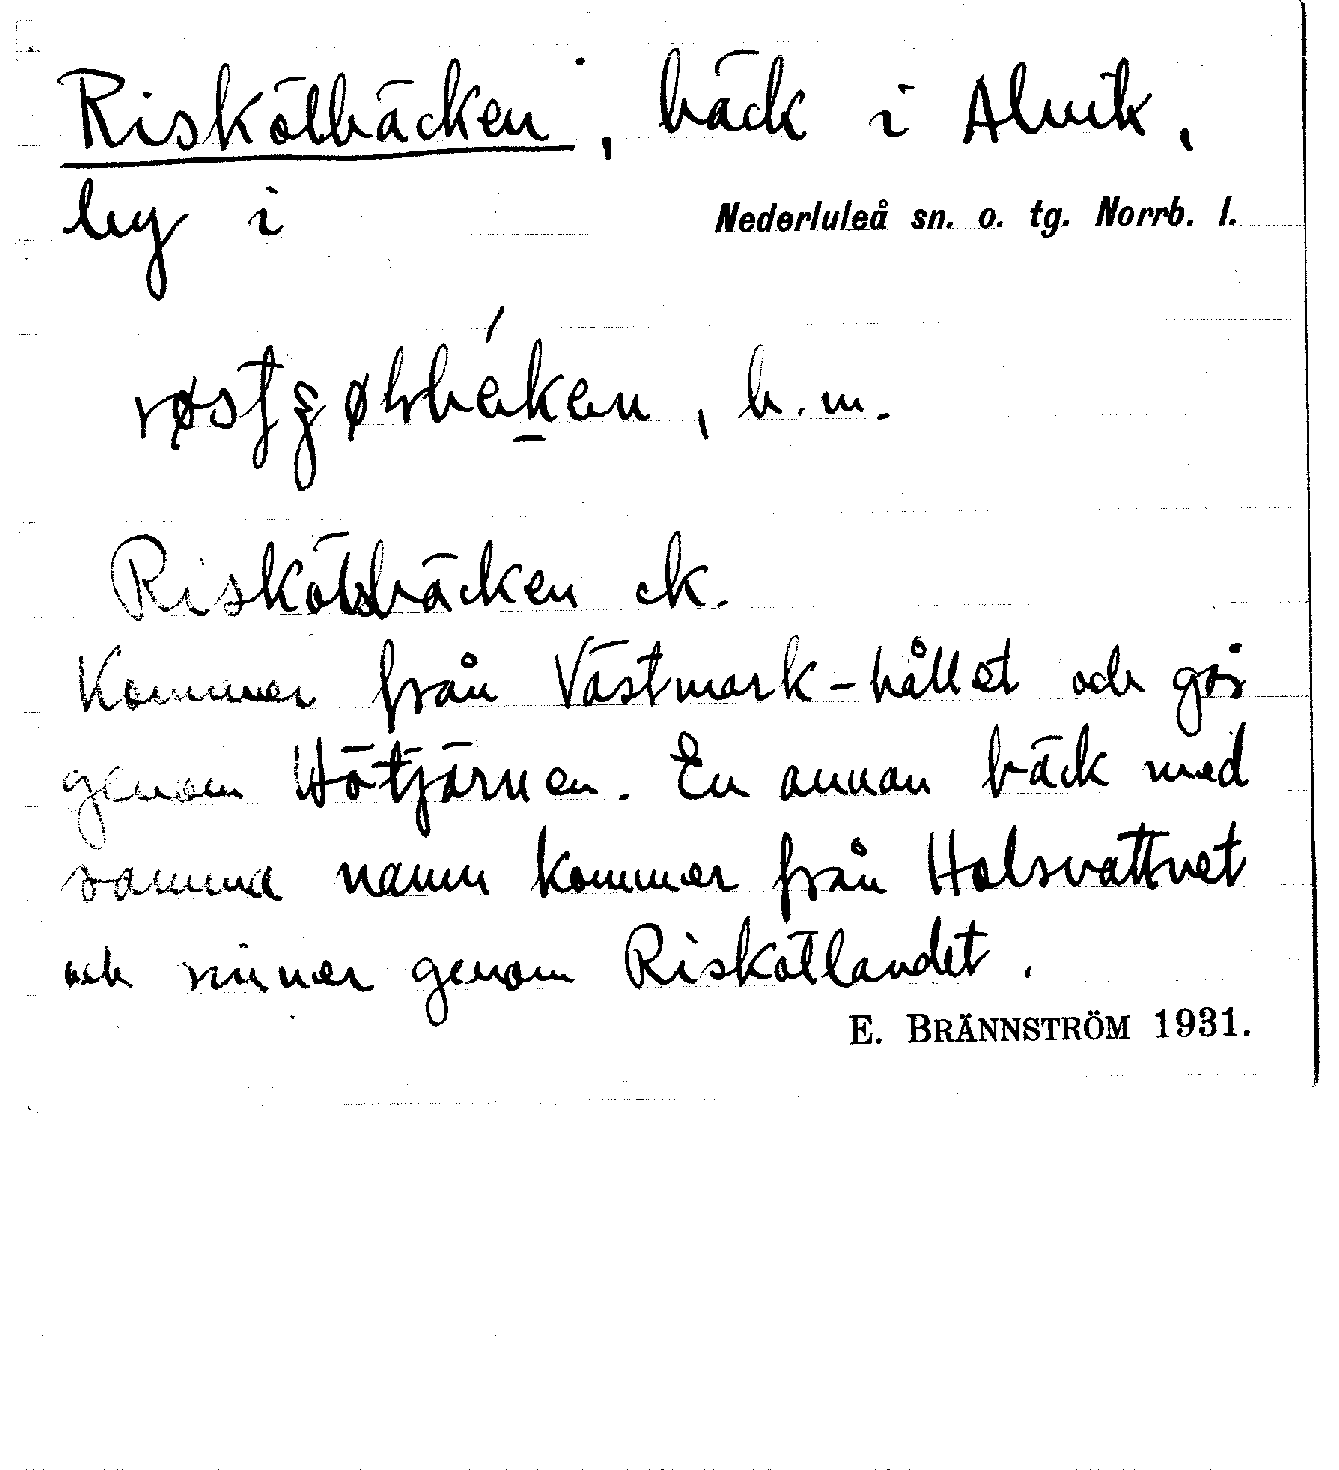 Riskölbäcken, bäck i Alvik,
by i Nederluleå sn. o. tg. Norrb. l.
b. m.
Riskölsbäcken ek.
Kommer från Västmark-hållet och gör
genom Hötjärnen. En annan bäck med
samma namn kommer från Holsvattnet
och rinner genom Riskötlandet.
E. BRÄNNSTRÖM 1931.